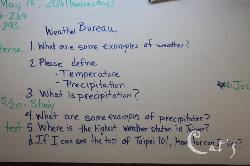 May 18, 2016 (Wednesday)
239
293
Weather Bureau
1. What are some examples of weather?
2. Please define
- Temperature
- Precipitation
3. What is precipitation?
5/20 - Study
4. What are some examples of precipitation?
test
5. Where is the highest weather station in Taiwan?
6. If I can see the top of Taipei 101, How far can
Cat's